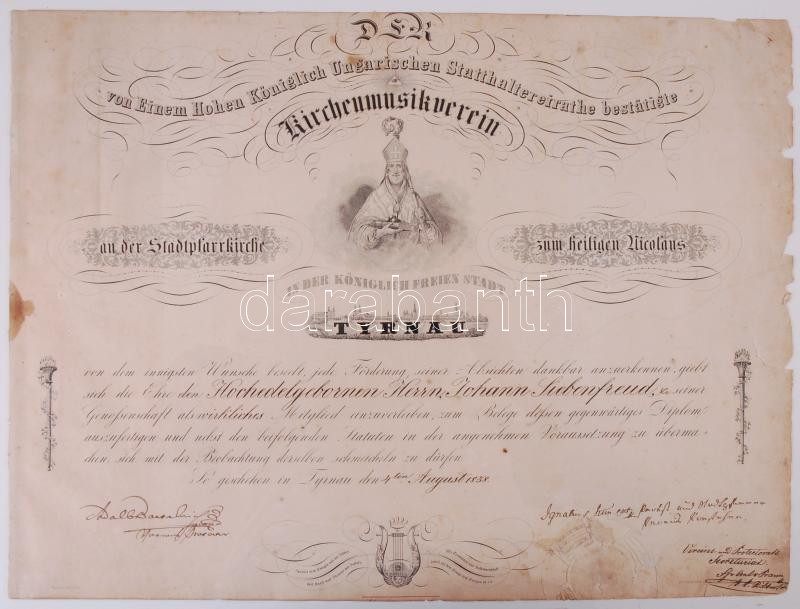 DER
von Einem Hohen Königlich Ungarischen Statthaltereirathe bestätigte
Kirchenmusikverein
an der Stadtpfarrkirche zum heiligen Nicolaus
IN DER KÖNIGLICH FREIEN STADT
darabanth
TYRNAU
von dem innigsten Wunsche beseelt, jede Förderung seiner Absichten dankbar anzuerkennen, giebt
sich die Ehre den Hochedelgebornen Herrn Johann Siebenfreud, zu seiner
Genoßenschaft als wirkliches Mitglied anzuverleiben, zum Belege deßen gegenwärtiges Diplom
auszufertigen und nebst den beifolgenden Statuten in der angenehmen Voraussetzung zu überma-
chen, sich mit der Beobachtung derselben schmeicheln zu dürfen.
So geschehen in Tyrnau den 4ten August 1838.
Ignatius und
Vereins und Protectorats
Secretariat